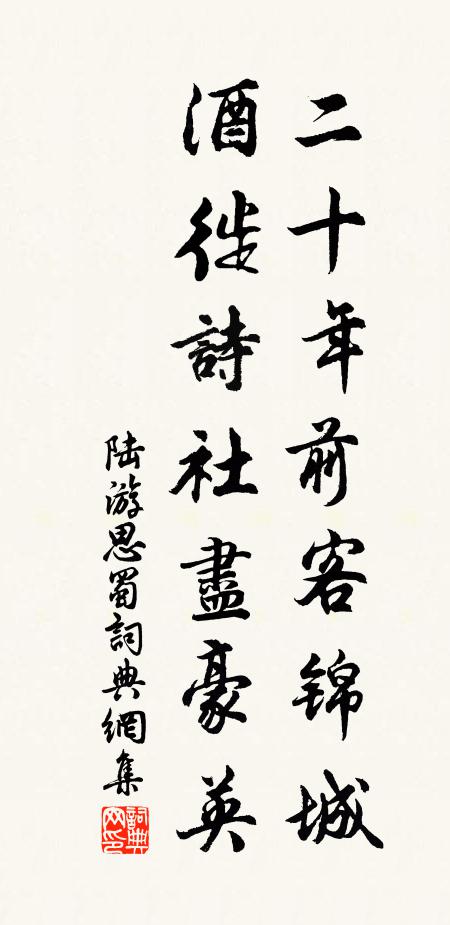 二十年前客锦城
酒徒詩社盡豪英
陆游思蜀詞典網集
詞典网印